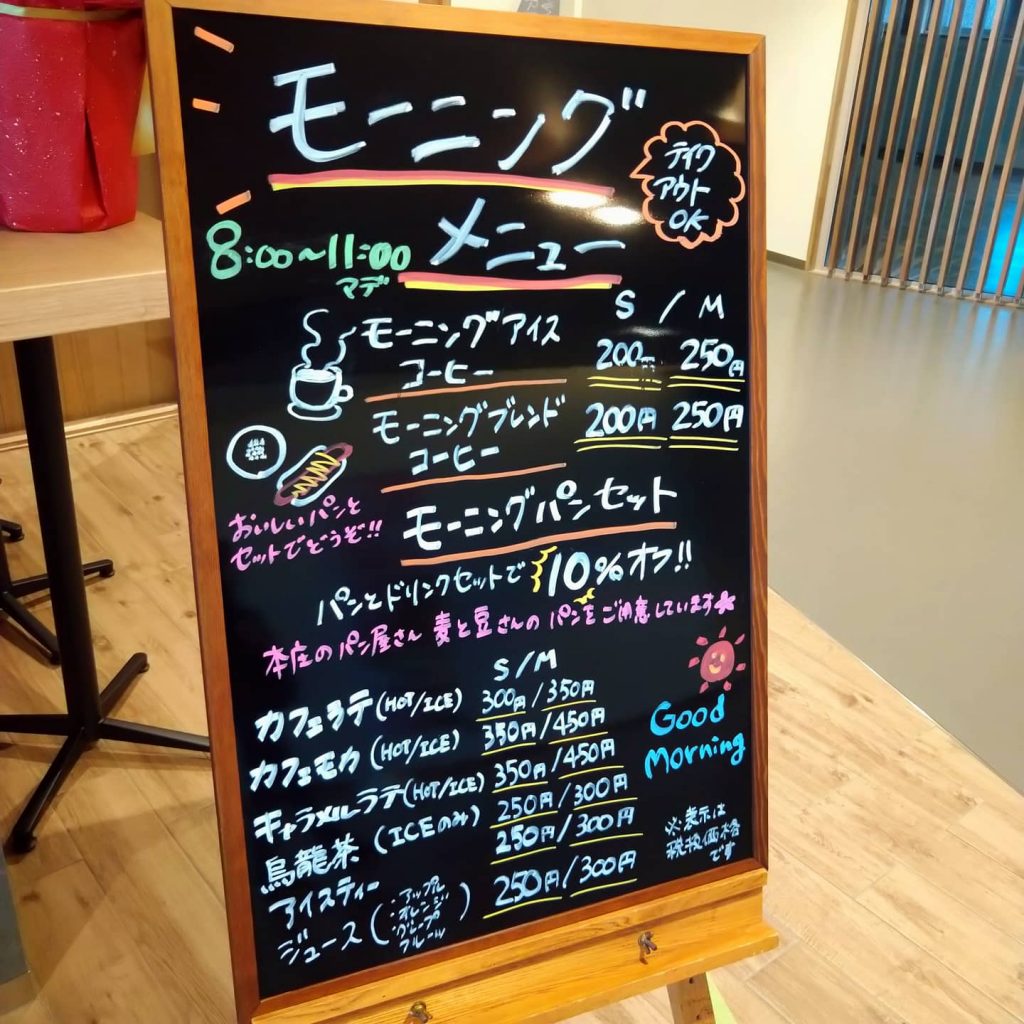 モーニング
テイク
アウト
OK
メニュー
8:00〜11:00
マデ
S / M
モーニングアイス
コーヒー
200円 250円
モーニングブレンド
コーヒー
200円 250円
おいしいパンと
セットでどうぞ!!
モーニングパンセット
パンとドリンクセットで 10%オフ!!
本庄のパン屋さん 麦と豆さんの パンをご用意しています
S/M
カフェラテ(HOT/ICE) 300円/350円
カフェモカ(HOT/ICE) 350円/450円
キャラメルラテ(HOT/ICE) 350円/450円
烏龍茶(ICEのみ) 250円/300円
アイスティー 250円/300円
ジュース(・アップル
・オレンジ
・グレープ
フルーツ) 250円/300円
Good
Morning
※表示は
税抜価格
です